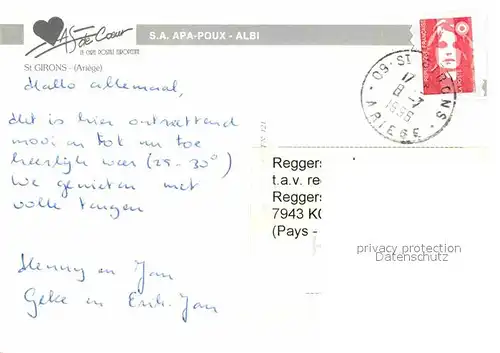 As de Cœur
LA CARTE POSTALE EUROPEENNE
S.A. APA-POUX - ALBI
St GIRONS - (Ariège)
Hallo allemaal,
Het is hier ontzettend
mooi en tot nu toe
heerlijk weer (29-30°)
We genieten met
volle teugen
Henny en Jan
Geke en Erik-Jan
09-St GIRONS
17
8-7
1996
ARIEGE
Reggers
t.a.v. re
Reggers
7943 K
(Pays -
privacy protection
Datenschutz